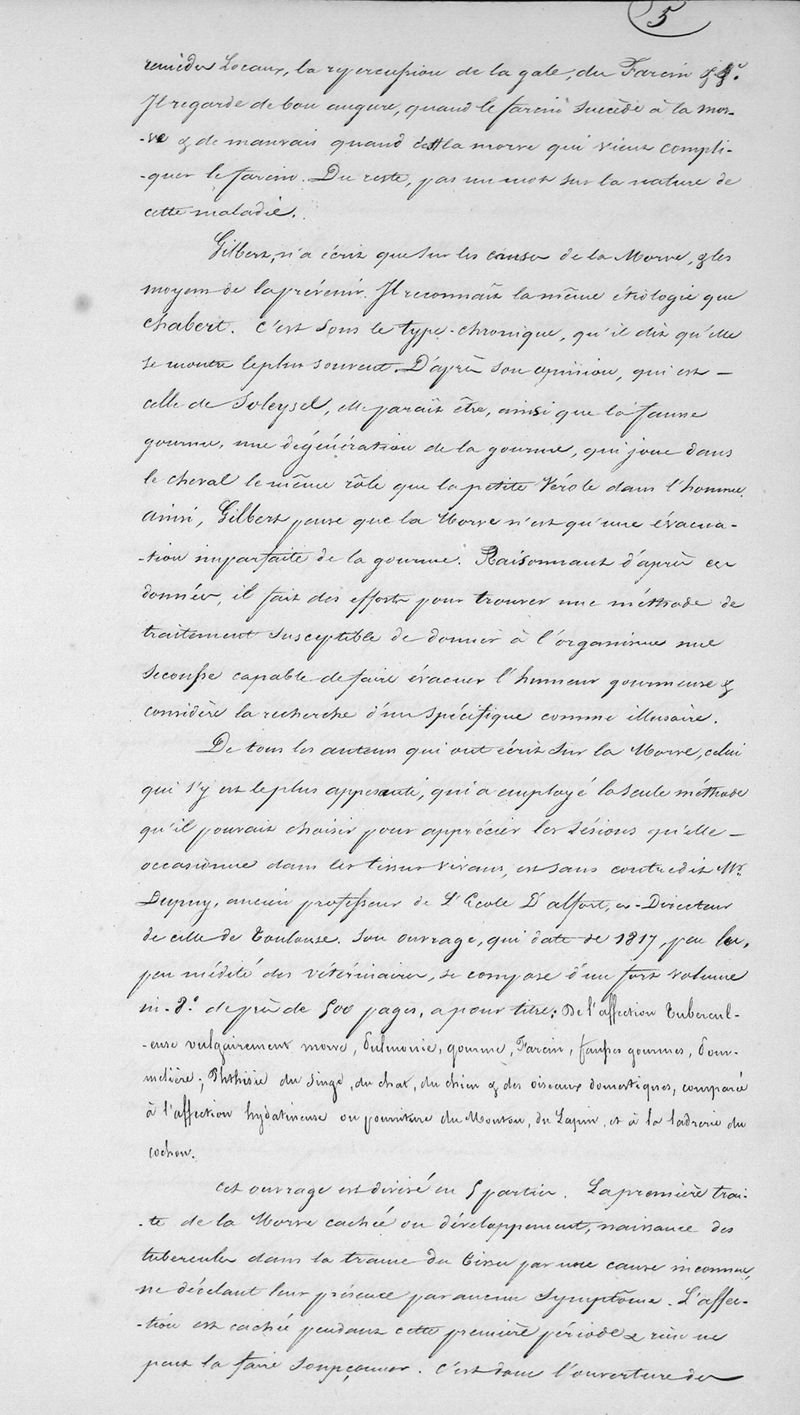 5
remèdes Locaux, la répercussion de la gale, du Farcin &c.
Il regarde de bon augure, quand le farcin succède à la mor-
-ve & de mauvais quand c'est la morve qui vient compli-
-quer le farcin. Du reste, pas un mot sur la nature de
cette maladie.
Gilbert, n'a écrit que sur les causes de la Morve, & les
moyens de la prévenir. Il reconnaît la même étiologie que
Chabert. C'est sous le type chronique, qu'il dit qu'elle
se montre le plus souvent. D'après son opinion, qui est —
celle de Soleysel, elle paraît être, ainsi que la fausse
gourme, une dégénération de la gourme, qui joue dans
le cheval le même rôle que la petite Vérole dans l'homme.
ainsi, Gilbert pense que la Morve n'est qu'une évacua-
-tion imparfaite de la gourme. Raisonnant d'après ces
données, il fait des efforts pour trouver une méthode de
traitement susceptible de donner à l'organisme une
secousse capable de faire évacuer l'humeur gourmeuse &
considère la recherche d'un spécifique comme illusoire.
De tous les auteurs qui ont écrit sur la Morve, celui
qui s'y est le plus appesanti, qui a employé la seule méthode
qu'il pouvait choisir pour apprécier les lésions qu'elle —
occasionne dans les tissus vivans, est sans contredit Mr.
Dupuy, ancien professeur de L'Ecole D'alfort, ex-Directeur
de celle de Toulouse. Son ouvrage, qui date de 1817, peu lu,
peu médité des vétérinaires, se compose d'un fort volume
in-8º. de près de 500 pages, a pour titre: De l'affection tubercul-
-euse vulgairement morve, Pulmonie, gourme, Farcin, fausses gourmes, Pom-
melière; Phthisie du Singe, du chat, du chien & des oiseaux domestiques, comparée
à l'affection hydatineuse ou pourriture du Mouton, du Lapin, et à la ladrerie du
cochon.
Cet ouvrage est divisé en 5 parties. La première trai-
-te de la Morve cachée ou développement, naissance des
tubercules dans la trame du tissu par une cause inconnue,
ne décelant leur présence par aucun symptôme. L'affec-
-tion est cachée pendant cette première période & rien ne
peut la faire soupçonner. C'est donc l'ouverture des